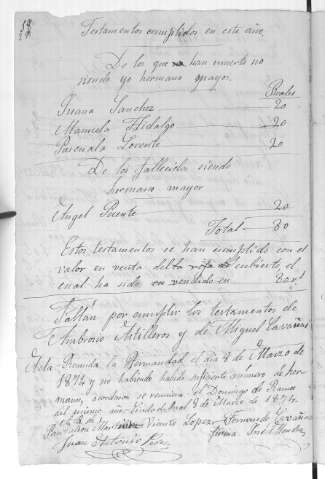 Testamentos cumplidos en este año
De los que han muerto no
siendo yo hermano mayor.
Reales
Juana Sanchez 20
Manuela Hidalgo 20
Pascuala Lorente 20
De los fallecidos siendo
hermano mayor
Angel Puente 20
Total 80
Estos testamentos se han cumplido con el
valor en venta del cubierto, el
cual ha sido vendido en 80 r.
Faltan por cumplir los testamentos de
Ambrosio Artilleros y de Miguel Cavañas
Acta Reunida la Hermandad el dia 8 de Marzo de
1874 y no habiendo habido suficiente numero de her
manos, acordaron se reuniera el Domingo de Ramos
del proximo 8 de Marzo de 1874.
Vicente Lopez Fernando Cavañas
Juan Antonio